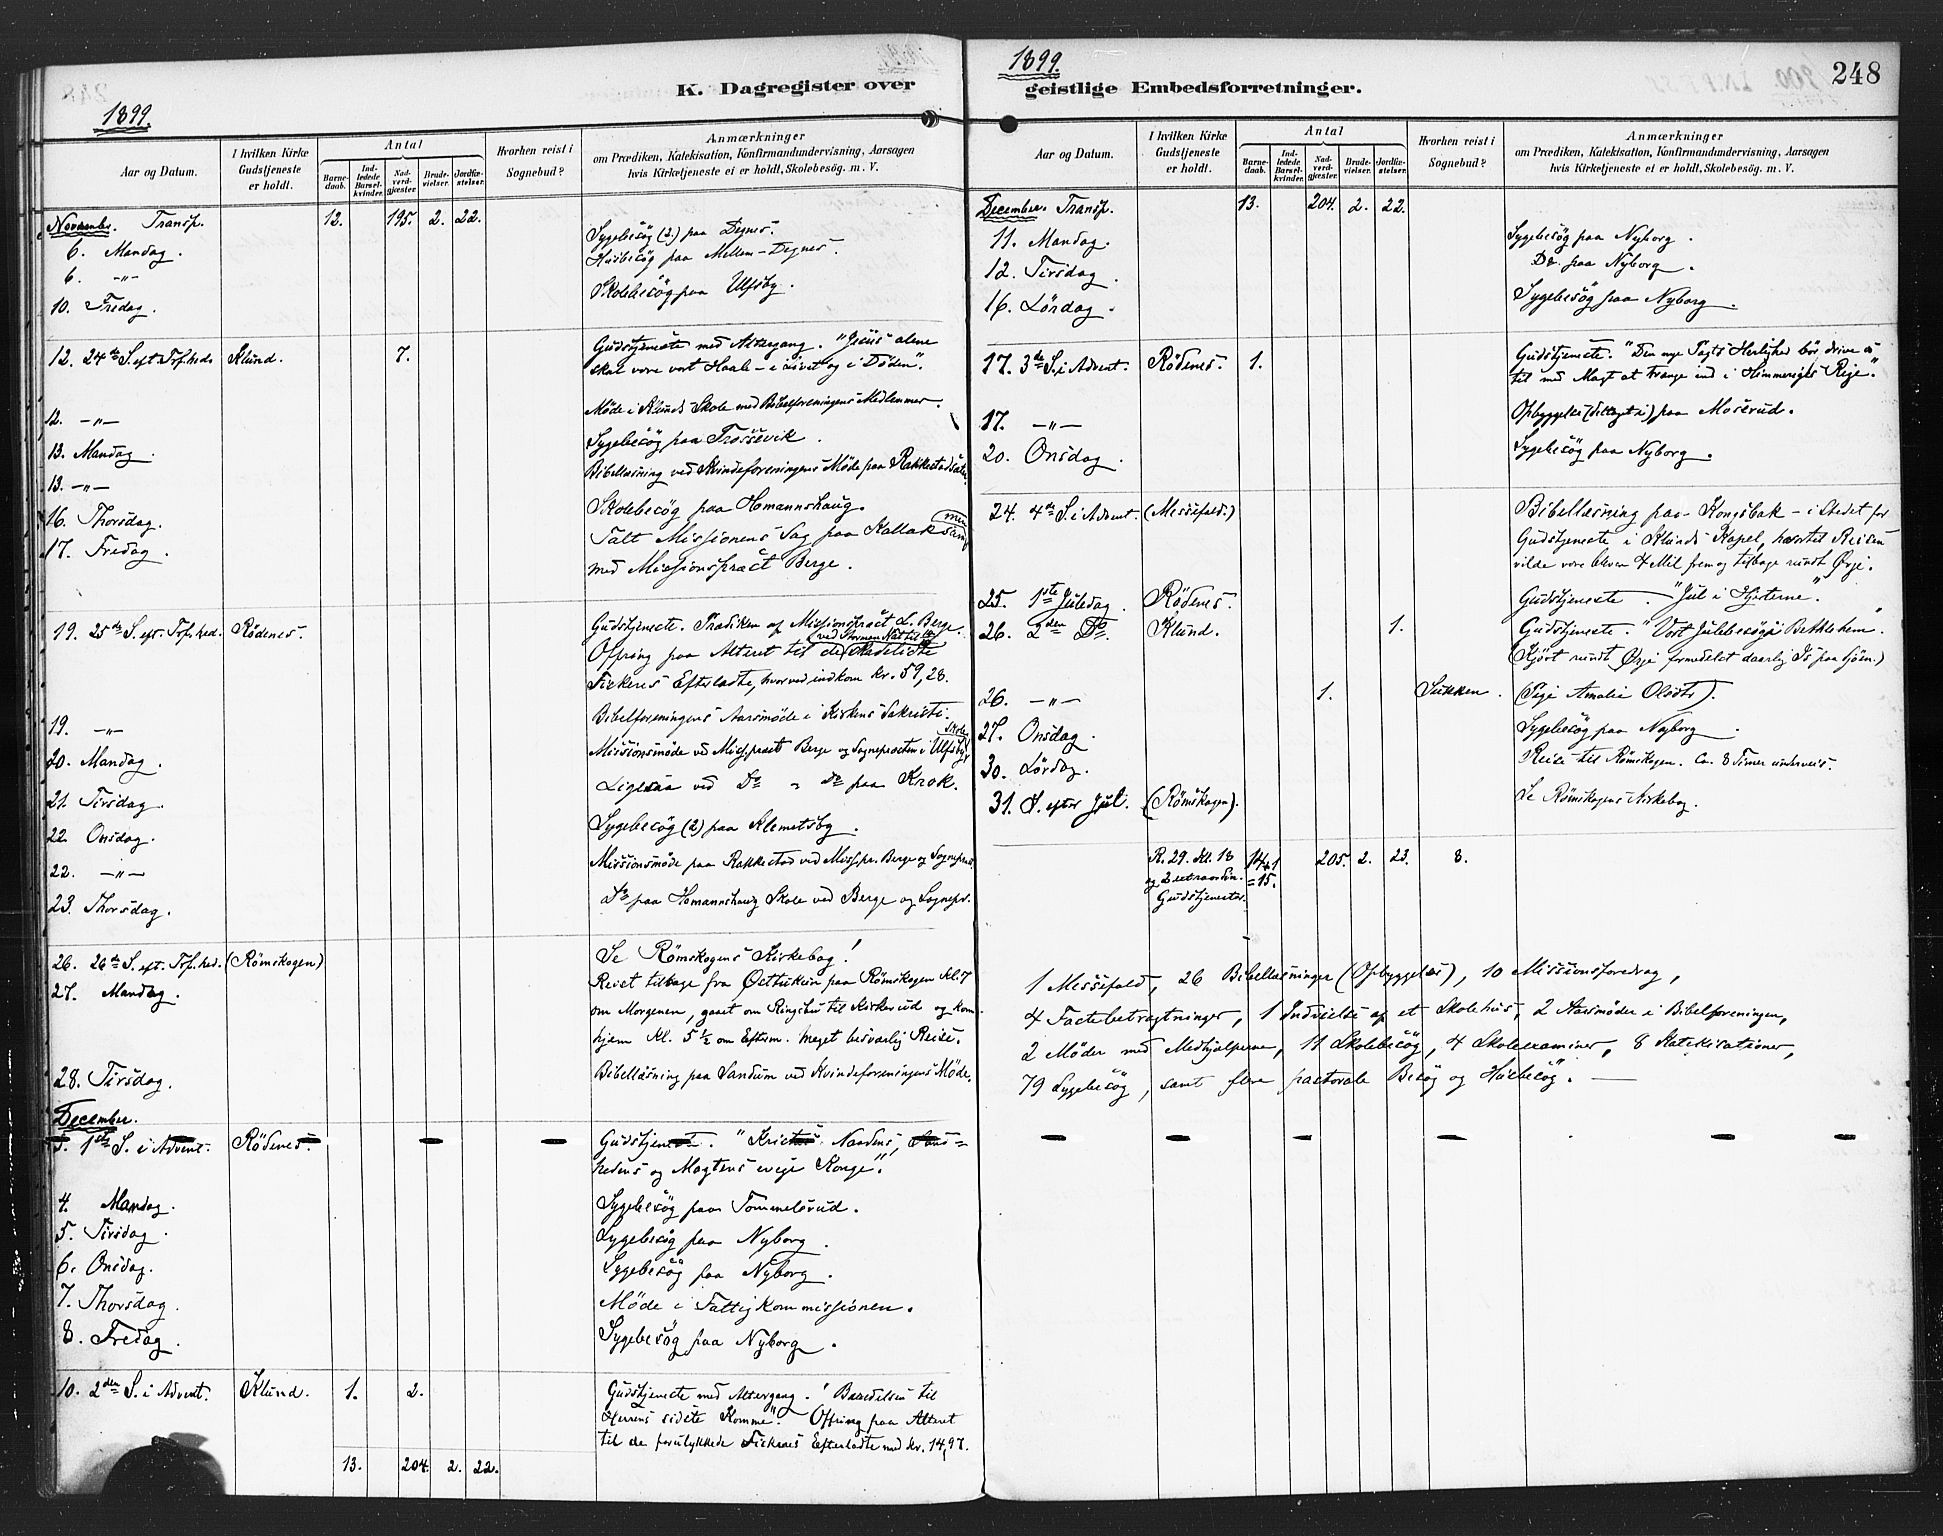 1899.
K. Dagregister over
Aar og Datum.
I hvilken Kirke Gudstjeneste er holdt.
Antal
Barnedaab.
Indledede Barselkvinder.
Nadverdgjæster
Brudevielser.
Jordfæstelser.
Hvorhen reist i Sognebud?
Anmærkninger
om Prædiken, Katekisation, Konfirmandundervisning, Aarsagen
hvis Kirketjeneste ei er holdt, Skolebesøg. m. V.
November. Transp. 12. 195. 2. 22.
6. Mandag. Sygebesøg (2) paa Degnes.
6. -"- Husbesøg paa Mellem-Degnes.
10. Fredag. Skolebesøg paa Ulfsby.
12. 24de S. eft. Tref.hed. Klund. 7. Gudstjeneste med Altergang. "Jesus alene
skal være vort Haab - i Livet og i Døden".
12. -"- Møde i Klunds Skole med Bibelforeningens Medlemmer.
13. Mandag. Sygebesøg paa Trossevik.
13. -"- Bibellæsning ved Kvindeforeningens Møde paa Rakkestad
16. Thorsdag. Skolebesøg paa Homannshaug.
17. Fredag. Talt Missionens Sag paa Kallak sammen
med Missionspræst Berge.
19. 25de S. eft. Tref.hed. Rødenes. Gudstjeneste. Prædiken af Missionspræst L. Berge.
Offring paa Alteret til de
Fiskeres Efterladte, hvorved indkom kr. 59,28.
19. -"- Bibelforeningens Aarsmøde i Kirkens Sakristi.
20. Mandag. Missionsmøde ved Miss.præst Berge og Sognepræsten i Ulfsby Skole
21. Tirsdag. Ligesaa ved Do " do paa Krok.
22. Onsdag. Sygebesøg (2) paa Klemetsby.
22. -"- Missionsmøde paa Rakkestad ved Miss.pr. Berge og Sognepræst.
23. Thorsdag. Do paa Homannshaug Skole ved Berge og Sognepr.
26. 26de S. eft. Tref.hed. (Rømskogen) Se Rømskogens Kirkebog!
27. Mandag. Reist tilbage fra paa Rømskogen Kl. 7
om Morgenen, gaaet om Ringsbu til Kirkerud og kom
hjem Kl. 5 1/2 om Efterm. Meget besværlig Reise.
28. Tirsdag. Bibellæsning paa Sandum ved Kvindeforeningens Møde.
December.
3. 1ste S. i Advent. Rødenes. Gudstjeneste. "Kristus Naadens, Sand=
hedens og Magtens evige Konge".
4. Mandag. Sygebesøg paa Tommelsrud.
5. Tirsdag. Sygebesøg paa Nyborg.
6. Onsdag. Sygebesøg paa Nyborg.
7. Thorsdag. Møde i Fattigkommissionen.
8. Fredag. Sygebesøg paa Nyborg.
10. 2den S. i Advent. Klund. 1. 2. Gudstjeneste med Altergang. "Beredelsen til
Herrens sidste Komme". Offring paa Alteret
til de forulykkede Fiskeres Efterladte med kr. 14,97.
13. 204. 2. 22.
1899.
geistlige Embedsforretninger.
248
Aar og Datum.
I hvilken Kirke Gudstjeneste er holdt.
Antal
Barnedaab.
Indledede Barselkvinder.
Nadverdgjæster
Brudevielser.
Jordfæstelser.
Hvorhen reist i Sognebud?
Anmærkninger
om Prædiken, Katekisation, Konfirmandundervisning, Aarsagen
hvis Kirketjeneste ei er holdt, Skolebesøg. m. V.
December. Transp. 13. 204. 2. 22.
11. Mandag. Sygebesøg paa Nyborg.
12. Tirsdag. Do. paa Nyborg.
16. Lørdag. Sygebesøg paa Nyborg.
17. 3de S. i Advent. Rødenes. 1. Gudstjeneste. "Den nye Pagts Herlighed bør drive os
til med Magt at trænge ind i Himmeriges Rige."
17. -"- Opbyggelse (deltaget i) paa Moserud.
20. Onsdag. Sygebesøg paa Nyborg.
24. 4de S. i Advent. (Messefald.) Bibellæsning paa Kongsbak - i Stedet for
Gudstjeneste i Klunds Kapel, hvortil Reisen
vilde være bleven 4 Mil frem og tilbage rundt Ørje.
25. 1ste Juledag. Rødenes. Gudstjeneste. "Jul i Hjerterne."
26. 2den Do. Klund. 1. Gudstjeneste. "Vort Julebesøg i Bethlehem."
(Kjørt rundt Ørje formedelst daarlig Is paa Sjøen.)
26. -"- 1. Sukken. (Pige Amalie Olsdtr).
27. Onsdag. Sygebesøg paa Nyborg.
30. Lørdag. Reise til Rømskogen. Ca. 8 Timer underveis.
31. S. efter Jul. (Rømskogen). Se Rømskogens Kirkebog.
R. 29. Kl. 18 14+1 205. 2. 23. 8.
og 2 extraordin. =15.
Gudstjenester.
1 Messefald, 26 Bibellæsninger (Opbyggelse), 10 Missionsforedrag,
4 Fastebetragtninger, 1 Indvielse af et Skolehus, 2 Aarsmøder i Bibelforeningen,
2 Møder med Medhjælperne, 11 Skolebesøg, 4 Skoleexaminer, 8 Katekisationer,
79 Sygebesøg, samt flere pastorale Besøg og Husbesøg. —